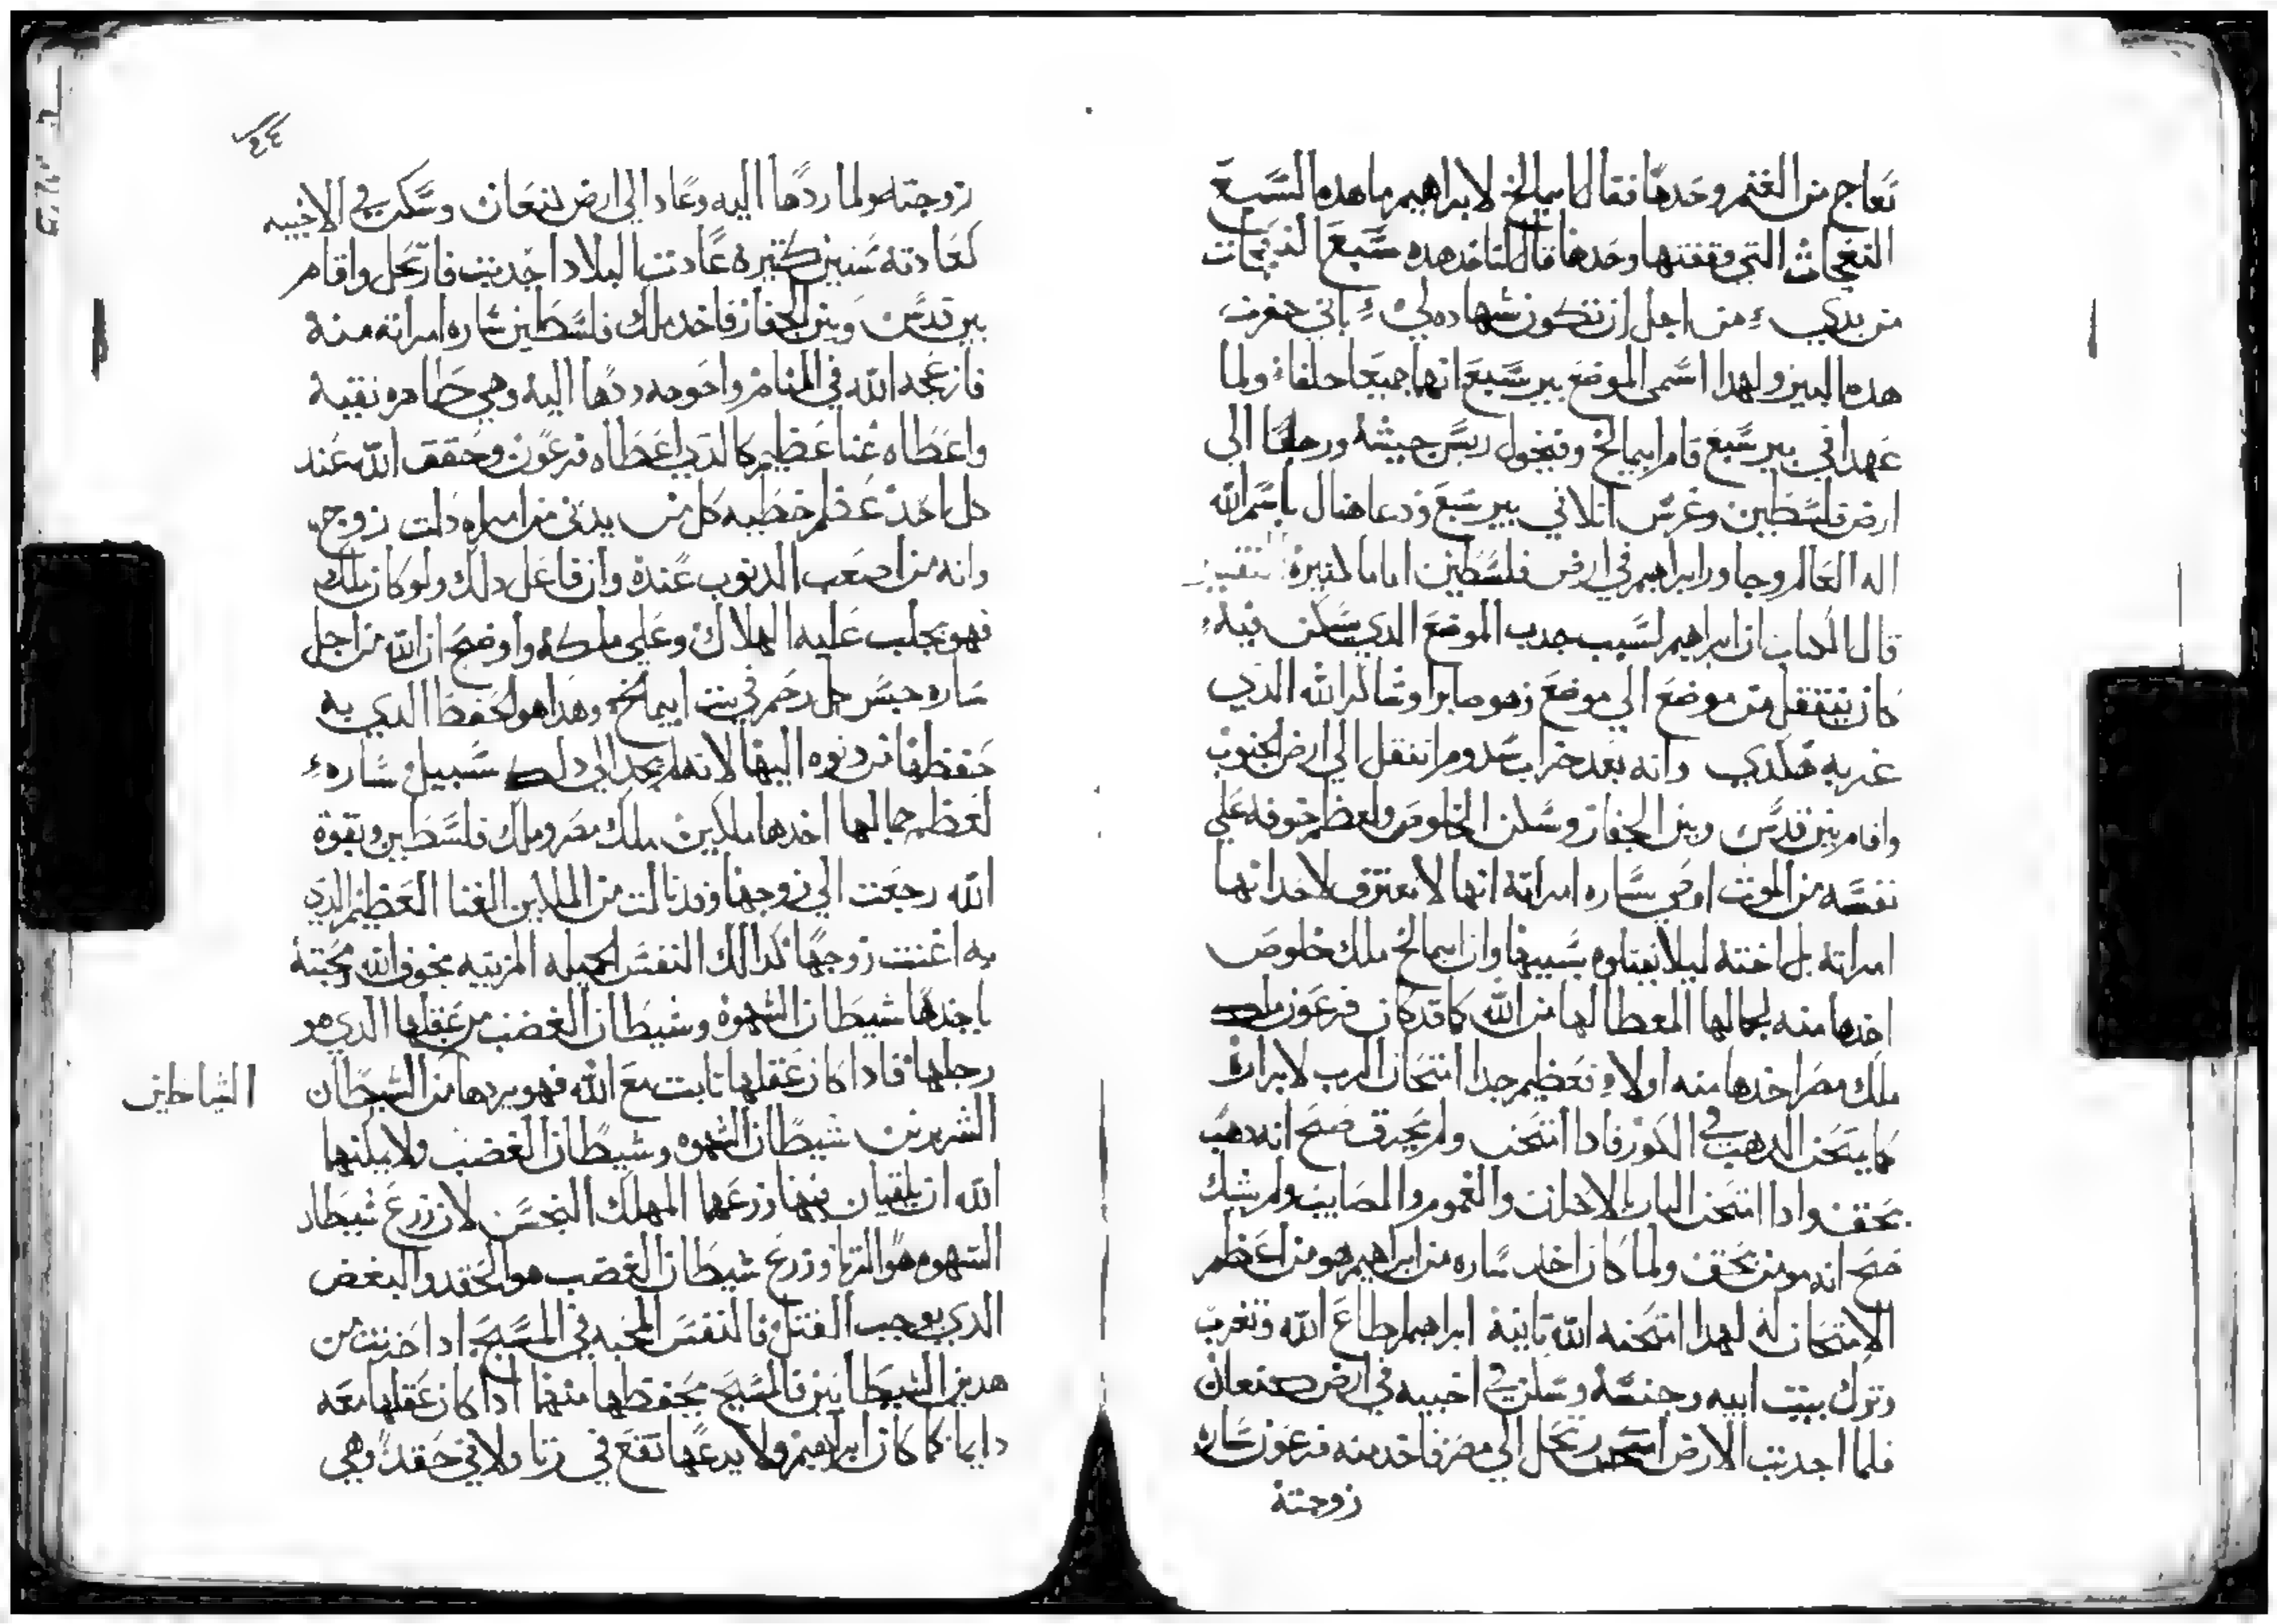 نعاج من الغنم وحدها فقال ابيمالخ لابراهيم ما هده السبع
النعجات التي وقفتها وحدها قال لتاخد هده سبع النعجات
من يدي من اجل ان تكون شهاده لي باني حفرت
هده البير ولهدا اسمي الموضع بير سبع انهما جميعا حلفا ولما
عهدا في بير سبع قام ابيمالخ وفيخول ريس جيشه ورجعا الي
ارض فلسطين وغرس اتلا في بير سبع ودعا هناك باسم الله
اله العالم وجاور ابراهيم في ارض فلسطين اياما كتيرة التفسير
قال الكتاب ان ابراهيم لسبب جدب الموضع الدي سكن فيه
كان ينتقل من موضع الي موضع وهو صابرا وشاكرا لله الدي
غربه هكدي وانه بعد خراب سدوم انتقل الي ارض الجنوب
واقام بين قدس وبين الجفار وسكن الخلوص ولعظم خوفه علي
نفسه من الموت اوصي ساره امراته انها لا تعترف لاحد انها
امراته بل اخته ليلا يقتلوه بسببها وان ابيمالخ ملك خلوص
اخدها منه لجمالها المعطا لها من الله كما قد كان فرعون ملك
ملك مصر اخدها منه اولا وتعظيم جدا امتحان الرب لابراره
كما يمتحن الدهب في الكور فادا امتحن ولم يحترق صح انه دهب
بحق وادا امتحن البار بالاحزان والغموم والمصايب ولم يشك
صح انه مومن بحق ولما كان اخد ساره من ابراهيم هو من اعظم
الامتحان له لهدا امتحنه الله تانية ابراهيم طاع الله وتغرب
وترك بيت ابيه وجنسه وسكن في اخبيه في ارض كنعان
فلما اجدبت الارض رحل الي مصر فاخد منه فرعون ساره
زوجته
زوجته ولما ردها اليه وعاد الي ارض كنعان وسكن في الاخبيه
كعادته سنين كتيره عادت البلاد اجدبت فارتحل واقام
بين قدس وبين الجفار فاخد ملك فلسطين ساره امراته منه
فازعجه الله في المنام واحوجه ردها اليه وهي طاهره نقية
واعطاه غنا عظيم كالدي اعطاه فرعون وحقق الله عند
كل احد عظم خطيه كل من يدني من امراه دات زوج
وانه من اصعب الدنوب عنده وان فاعل دلك ولو كان ملك
فهو يجلب عليه الهلاك وعلي ملكه واوضح ان الله من اجل
ساره حبس كل رحم في بيت ابيمالخ وهدا هو الحفظ الدي به
حفظها من دنوه اليها لانه لم يجد الي دلك سبيل وساره
لعظم جمالها اخدها ملكين ملك مصر وملك فلسطين وبقوة
الله رجعت الي زوجها وقد نالت من الملكين الغنا العظيم الدي
به اغنت زوجها كدالك النفس الجميله المزينه بخوف الله ومحبته
ياخدها شيطان الشهوة وشيطان الغضب من عقلها الدي هو
رجلها فادا كان عقلها تابت مع الله فهو يردها من الشيطان
الشياطين
الشريرين شيطان الشهوه وشيطان الغضب ولا يمكنهما
الله ان يلقيان فيها زرعهما المهلك النجس لان زرع شيطان
الشهوه هو الزنا وزرع شيطان الغضب هو الحقد والبغض
الدي يوجب القتل فالنفس المحبه في المسيح ادا حزنت من
هدين الشيطانين فالمسيح يحفظها منهما ادا كان عقلها معه
دايما كما كان ابراهيم ولا يدعها تقع في زنا ولا في حقد وهي